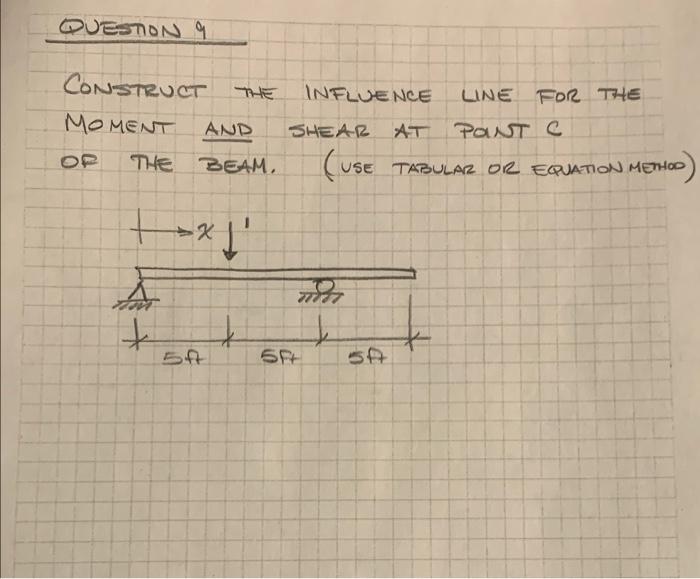 QUESTION 9
CONSTRUCT THE INFLUENCE LINE FOR THE
MOMENT AND SHEAR AT POINT C
OF THE BEAM. (USE TABULAR OR EQUATION METHOD)
x 1
5ft 5ft 5ft